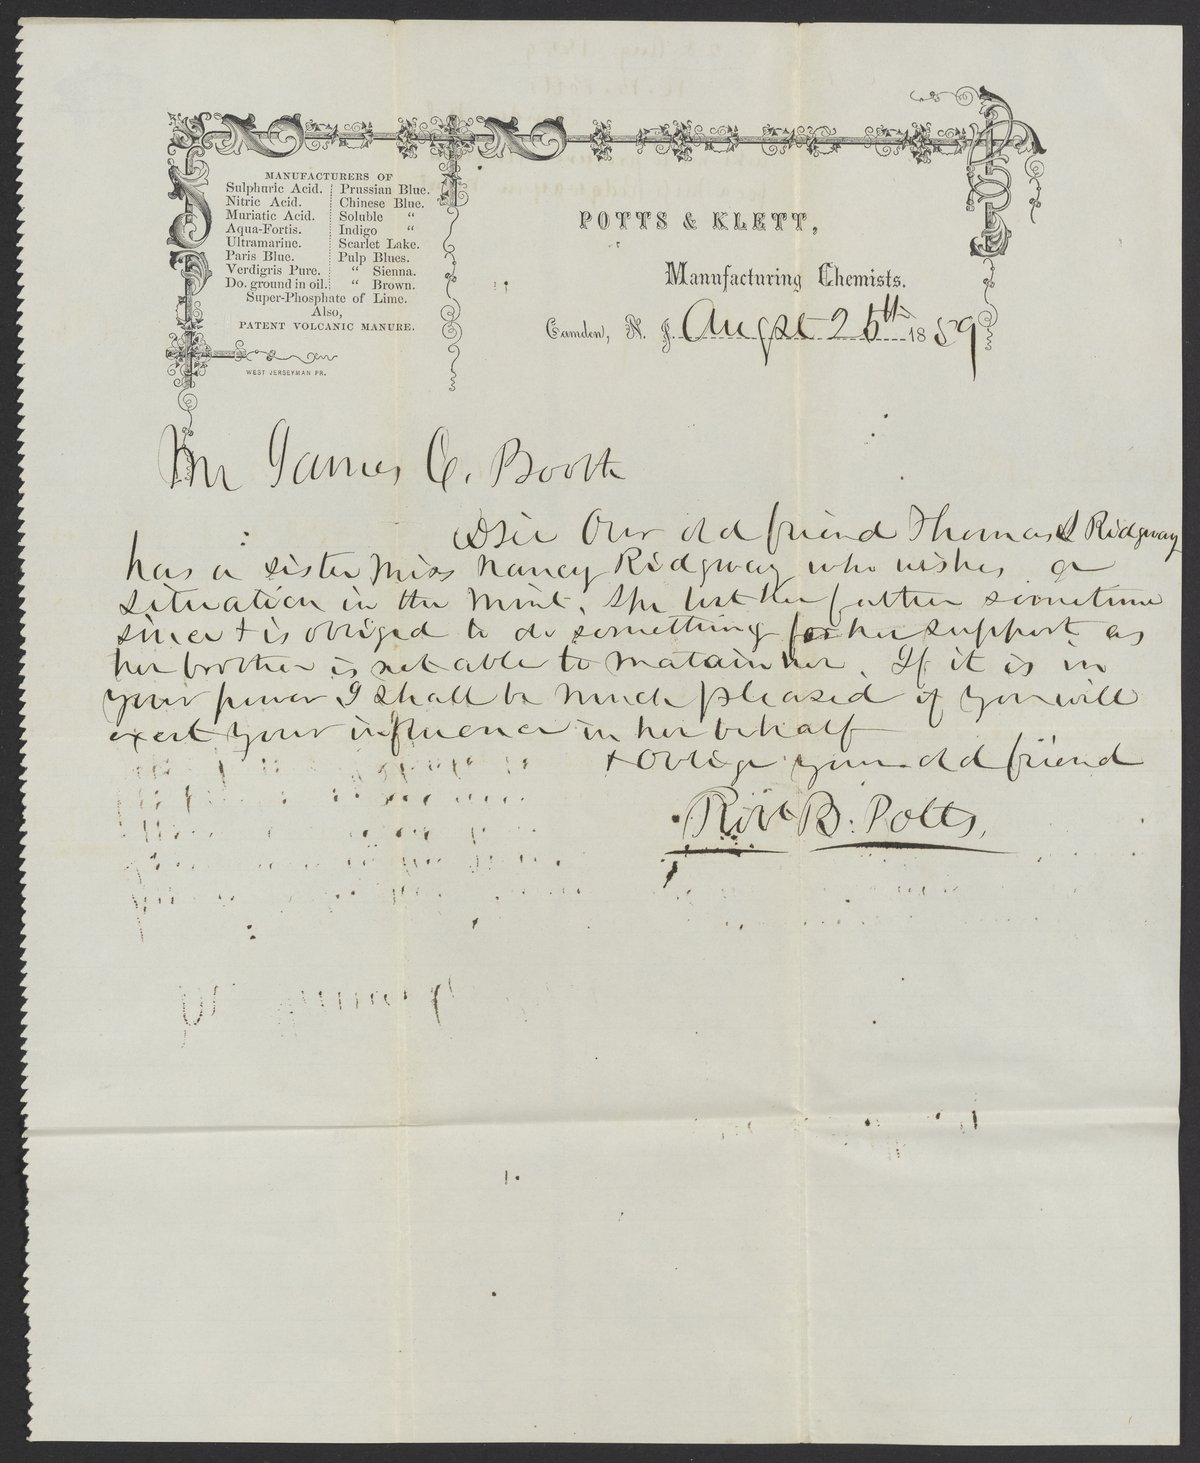 MANUFACTURERS OF
Sulphuric Acid. Prussian Blue.
Nitric Acid. Chinese Blue.
Muriatic Acid. Soluble "
Aqua-Fortis. Indigo "
Ultramarine. Scarlet Lake.
Paris Blue. Pulp Blues.
Verdigris Pure. " Sienna.
Do. ground in oil. " Brown.
Super-Phosphate of Lime.
Also,
PATENT VOLCANIC MANURE.
WEST JERSEYMAN PR.
POTTS & KLETT,
Manufacturing Chemists.
Camden, N. J. Augst 25th 1859
Mr James C. Booth
DSir Our old friend Thomas S Ridgway
has a sister Miss Nancy Ridgway who wishes a
situation in the Mint. She lost her father sometime
since & is obliged to do something for her support as
her brother is not able to matain her. If it is in
your power I shall be much pleased if you will
exert your influence in her behalf
& oblige your old friend
Robt B. Potts.